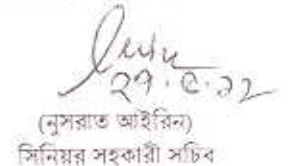 ২৭.৫.১২
(নুসরাত আইরিন)
সিনিয়র সহকারী সচিব